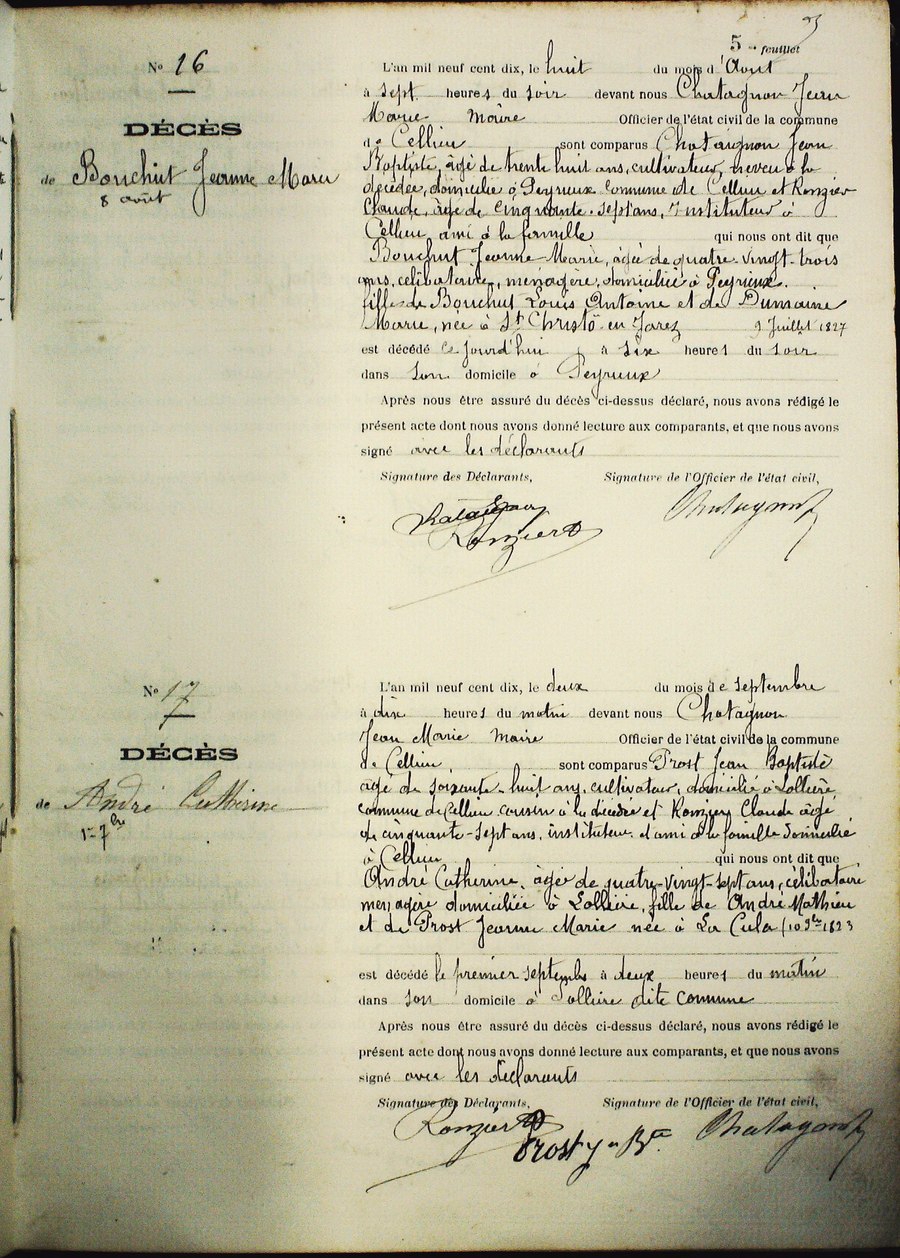 5me feuillet
No 16
DÉCÈS
de Bouchut Jeanne Marie
8 août
L'an mil neuf cent dix, le huit du mois d'Août
à sept heures du soir devant nous Chatagnon Jean
Marie Maire Officier de l'état civil de la commune
de Cellieu sont comparus Chataignon Jean
Baptiste, âgé de trente huit ans, cultivateur, neveu à la
décédée, domicilié à Peyrieux commune de Cellieu et Ronzier
Claude, âgé de cinquante-sept ans, Instituteur à
Cellieu, ami à la famille qui nous ont dit que
Bouchut Jeanne-Marie, âgée de quatre-vingt-trois
ans, célibataire, ménagère, domiciliée à Peyrieux.
fille de Bouchut Louis Antoine et de Dumaine
Marie, née à St Christô-en-Jarez 9 Juillet 1827
est décédé ce jourd'hui à six heures du soir
dans son domicile à Peyrieux
Après nous être assuré du décès ci-dessus déclaré, nous avons rédigé le
présent acte dont nous avons donné lecture aux comparants, et que nous avons
signé avec les déclarants
Signature des Déclarants, Signature de l'Officier de l'état civil,
Chatagnon
Ronzier
No 17
DÉCÈS
de André Catherine
1er 7bre
L'an mil neuf cent dix, le deux du mois de septembre
à dix heures du matin devant nous Chatagnon
Jean Marie Maire Officier de l'état civil de la commune
de Cellieu, sont comparus Prost Jean Baptiste
âgé de soixante-huit ans, cultivateur, domicilié à Lollière
commune de Cellieu cousin à la décédée et Ronzier Claude âgé
de cinquante-sept ans, instituteur et ami à la famille domicilié
à Cellieu qui nous ont dit que
André Catherine, âgée de quatre-vingt-sept ans, célibataire
ménagère domiciliée à Lollière, fille de André Mathieu
et de Prost Jeanne Marie née à La Cula (10 9bre 1823
est décédé le premier septembre à deux heures du matin
dans son domicile à Lollière dite commune
Après nous être assuré du décès ci-dessus déclaré, nous avons rédigé le
présent acte dont nous avons donné lecture aux comparants, et que nous avons
signé avec les déclarants
Signature des Déclarants, Signature de l'Officier de l'état civil,
Ronzier Chatagnon
Prost Jn Bte